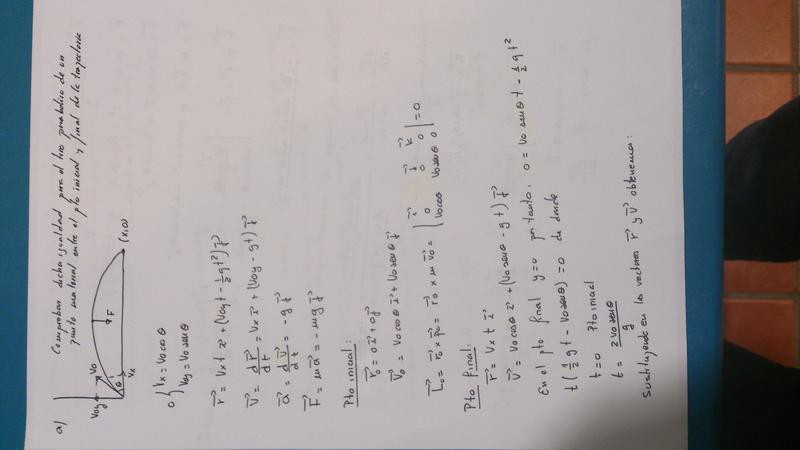 a) Comprobar dicha igualdad para el tiro parabólico de un
punto material entre el pto inicial y final de la trayectoria
Voy
Vo
F
θ
Vx
(x,0)
0 { Vx = Vo cos θ
Voy = Vo sen θ
r⃗ = Vx t i⃗ + (Voy t - 1/2 gt²) j⃗
V⃗ = dr⃗/dt = Vx i⃗ + (Voy - gt) j⃗
a⃗ = dv⃗/dt = -g j⃗
F⃗ = m a⃗ = - m g j⃗
Pto inicial:
r⃗₀ = 0 i⃗ + 0 j⃗
V⃗₀ = Vo cos θ i⃗ + Vo sen θ j⃗
L⃗₀ = r⃗₀ x p⃗₀ = r⃗₀ x m v⃗₀ = | i⃗ j⃗ k⃗ ; 0 0 0 ; Vo cos θ Vo sen θ 0 | = 0
Pto final:
r⃗ = Vx t i⃗
V⃗ = Vo cos θ i⃗ + (Vo sen θ - gt) j⃗
En el pto final y=0 por tanto: 0 = Vo sen θ t - 1/2 gt²
t (1/2 gt - Vo sen θ) = 0 de donde
t = 0 Pto inicial
t = 2 Vo sen θ / g
Sustituyendo en los vectores r⃗ y V⃗ obtenemos: